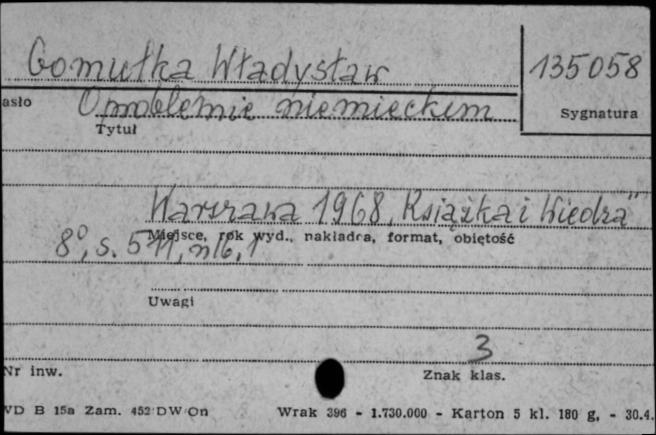 Gomułka Władysław
135058
asło
O problemie niemieckim
Sygnatura
Tytuł
Warszawa 1968, "Książka i Wiedza"
Miejsce, rok wyd., nakładca, format, objętość
8°, s. 511, nlb, 1
Uwagi
3
Nr inw.
Znak klas.
VD B 15a Zam. 452 DW On
Wrak 396 - 1.730.000 - Karton 5 kl. 180 g, - 30.4.